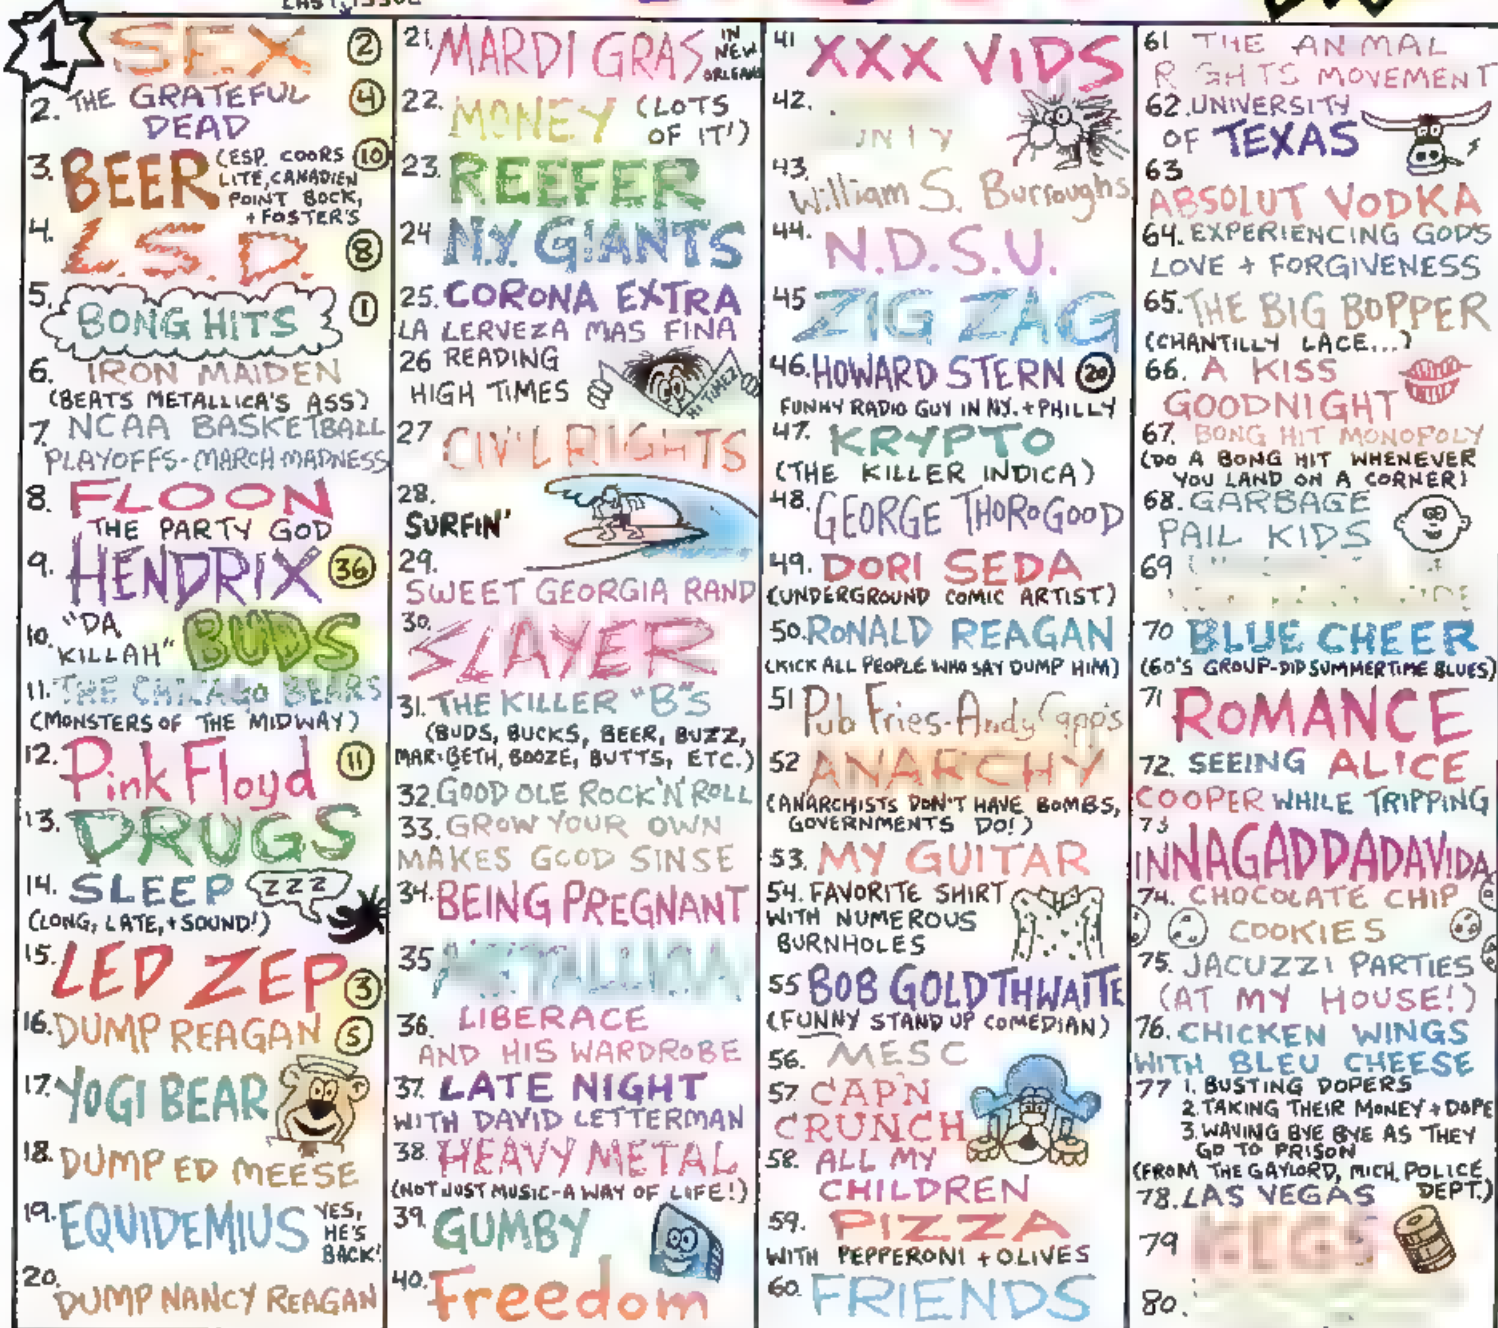 LAST ISSUE
1 SEX 2
2. THE GRATEFUL 4
DEAD
3. BEER (ESP. COORS 10
LITE, CANADIEN
POINT BOCK,
+ FOSTER'S
4. L.S.D. 8
5. BONG HITS 1
6. IRON MAIDEN
(BEATS METALLICA'S ASS)
7. NCAA BASKETBALL
PLAYOFFS-MARCH MADNESS
8. FLOON
THE PARTY GOD
9. HENDRIX 36
10. "DA
KILLAH" BUDS
11. THE CHICAGO BEARS
(MONSTERS OF THE MIDWAY)
12. Pink Floyd 11
13. DRUGS
14. SLEEP ZZZ
(LONG, LATE, + SOUND!)
15. LED ZEP 3
16. DUMP REAGAN 5
17. YOGI BEAR
18. DUMP ED MEESE
19. EQUIDEMIUS YES,
HE'S
BACK!
20. DUMP NANCY REAGAN
21. MARDI GRAS IN
NEW
ORLEANS
22. MONEY (LOTS
OF IT!)
23. REEFER
24 N.Y. GIANTS
25. CORONA EXTRA
LA LERVEZA MAS FINA
26 READING
HIGH TIMES
HI TIMEZ
27 CIVIL RIGHTS
28.
SURFIN'
29.
SWEET GEORGIA RAND
30. SLAYER
31. THE KILLER "B"S
(BUDS, BUCKS, BEER, BUZZ,
MARIBETH, BOOZE, BUTTS, ETC.)
32. GOOD OLE ROCK'N'ROLL
33. GROW YOUR OWN
MAKES GOOD SINSE
34. BEING PREGNANT
35 METALLICA
36. LIBERACE
AND HIS WARDROBE
37. LATE NIGHT
WITH DAVID LETTERMAN
38. HEAVY METAL
(NOT JUST MUSIC-A WAY OF LIFE!)
39. GUMBY
40. Freedom
41 XXX VIDS
42.
43.
William S. Burroughs
44. N.D.S.U.
45 ZIG ZAG
46. HOWARD STERN 20
FUNNY RADIO GUY IN NY. + PHILLY
47. KRYPTO
(THE KILLER INDICA)
48. GEORGE THOROGOOD
49. DORI SEDA
(UNDERGROUND COMIC ARTIST)
50. RONALD REAGAN
(KICK ALL PEOPLE WHO SAY DUMP HIM)
51 Pub Fries-Andy Capp's
52 ANARCHY
(ANARCHISTS DON'T HAVE BOMBS,
GOVERNMENTS DO!)
53. MY GUITAR
54. FAVORITE SHIRT
WITH NUMEROUS
BURNHOLES
55 BOB GOLDTHWAITE
(FUNNY STAND UP COMEDIAN)
56. MESC
57. CAP'N
CRUNCH
58. ALL MY
CHILDREN
59. PIZZA
WITH PEPPERONI + OLIVES
60. FRIENDS
61 THE ANIMAL
RIGHTS MOVEMENT
62. UNIVERSITY
OF TEXAS
63
ABSOLUT VODKA
64. EXPERIENCING GOD'S
LOVE + FORGIVENESS
65. THE BIG BOPPER
(CHANTILLY LACE...)
66. A KISS
GOODNIGHT
67. BONG HIT MONOPOLY
(DO A BONG HIT WHENEVER
YOU LAND ON A CORNER)
68. GARBAGE
PAIL KIDS
69
70 BLUE CHEER
(60'S GROUP-DID SUMMERTIME BLUES)
71 ROMANCE
72. SEEING ALICE
COOPER WHILE TRIPPING
73
INNAGADDADAVIDA
74. CHOCOLATE CHIP
COOKIES
75. JACUZZI PARTIES
(AT MY HOUSE!)
76. CHICKEN WINGS
WITH BLEU CHEESE
77 1. BUSTING DOPERS
2. TAKING THEIR MONEY + DOPE
3. WAVING BYE BYE AS THEY
GO TO PRISON
(FROM THE GAYLORD, MICH. POLICE
DEPT.)
78. LAS VEGAS
79 KEGS
80.